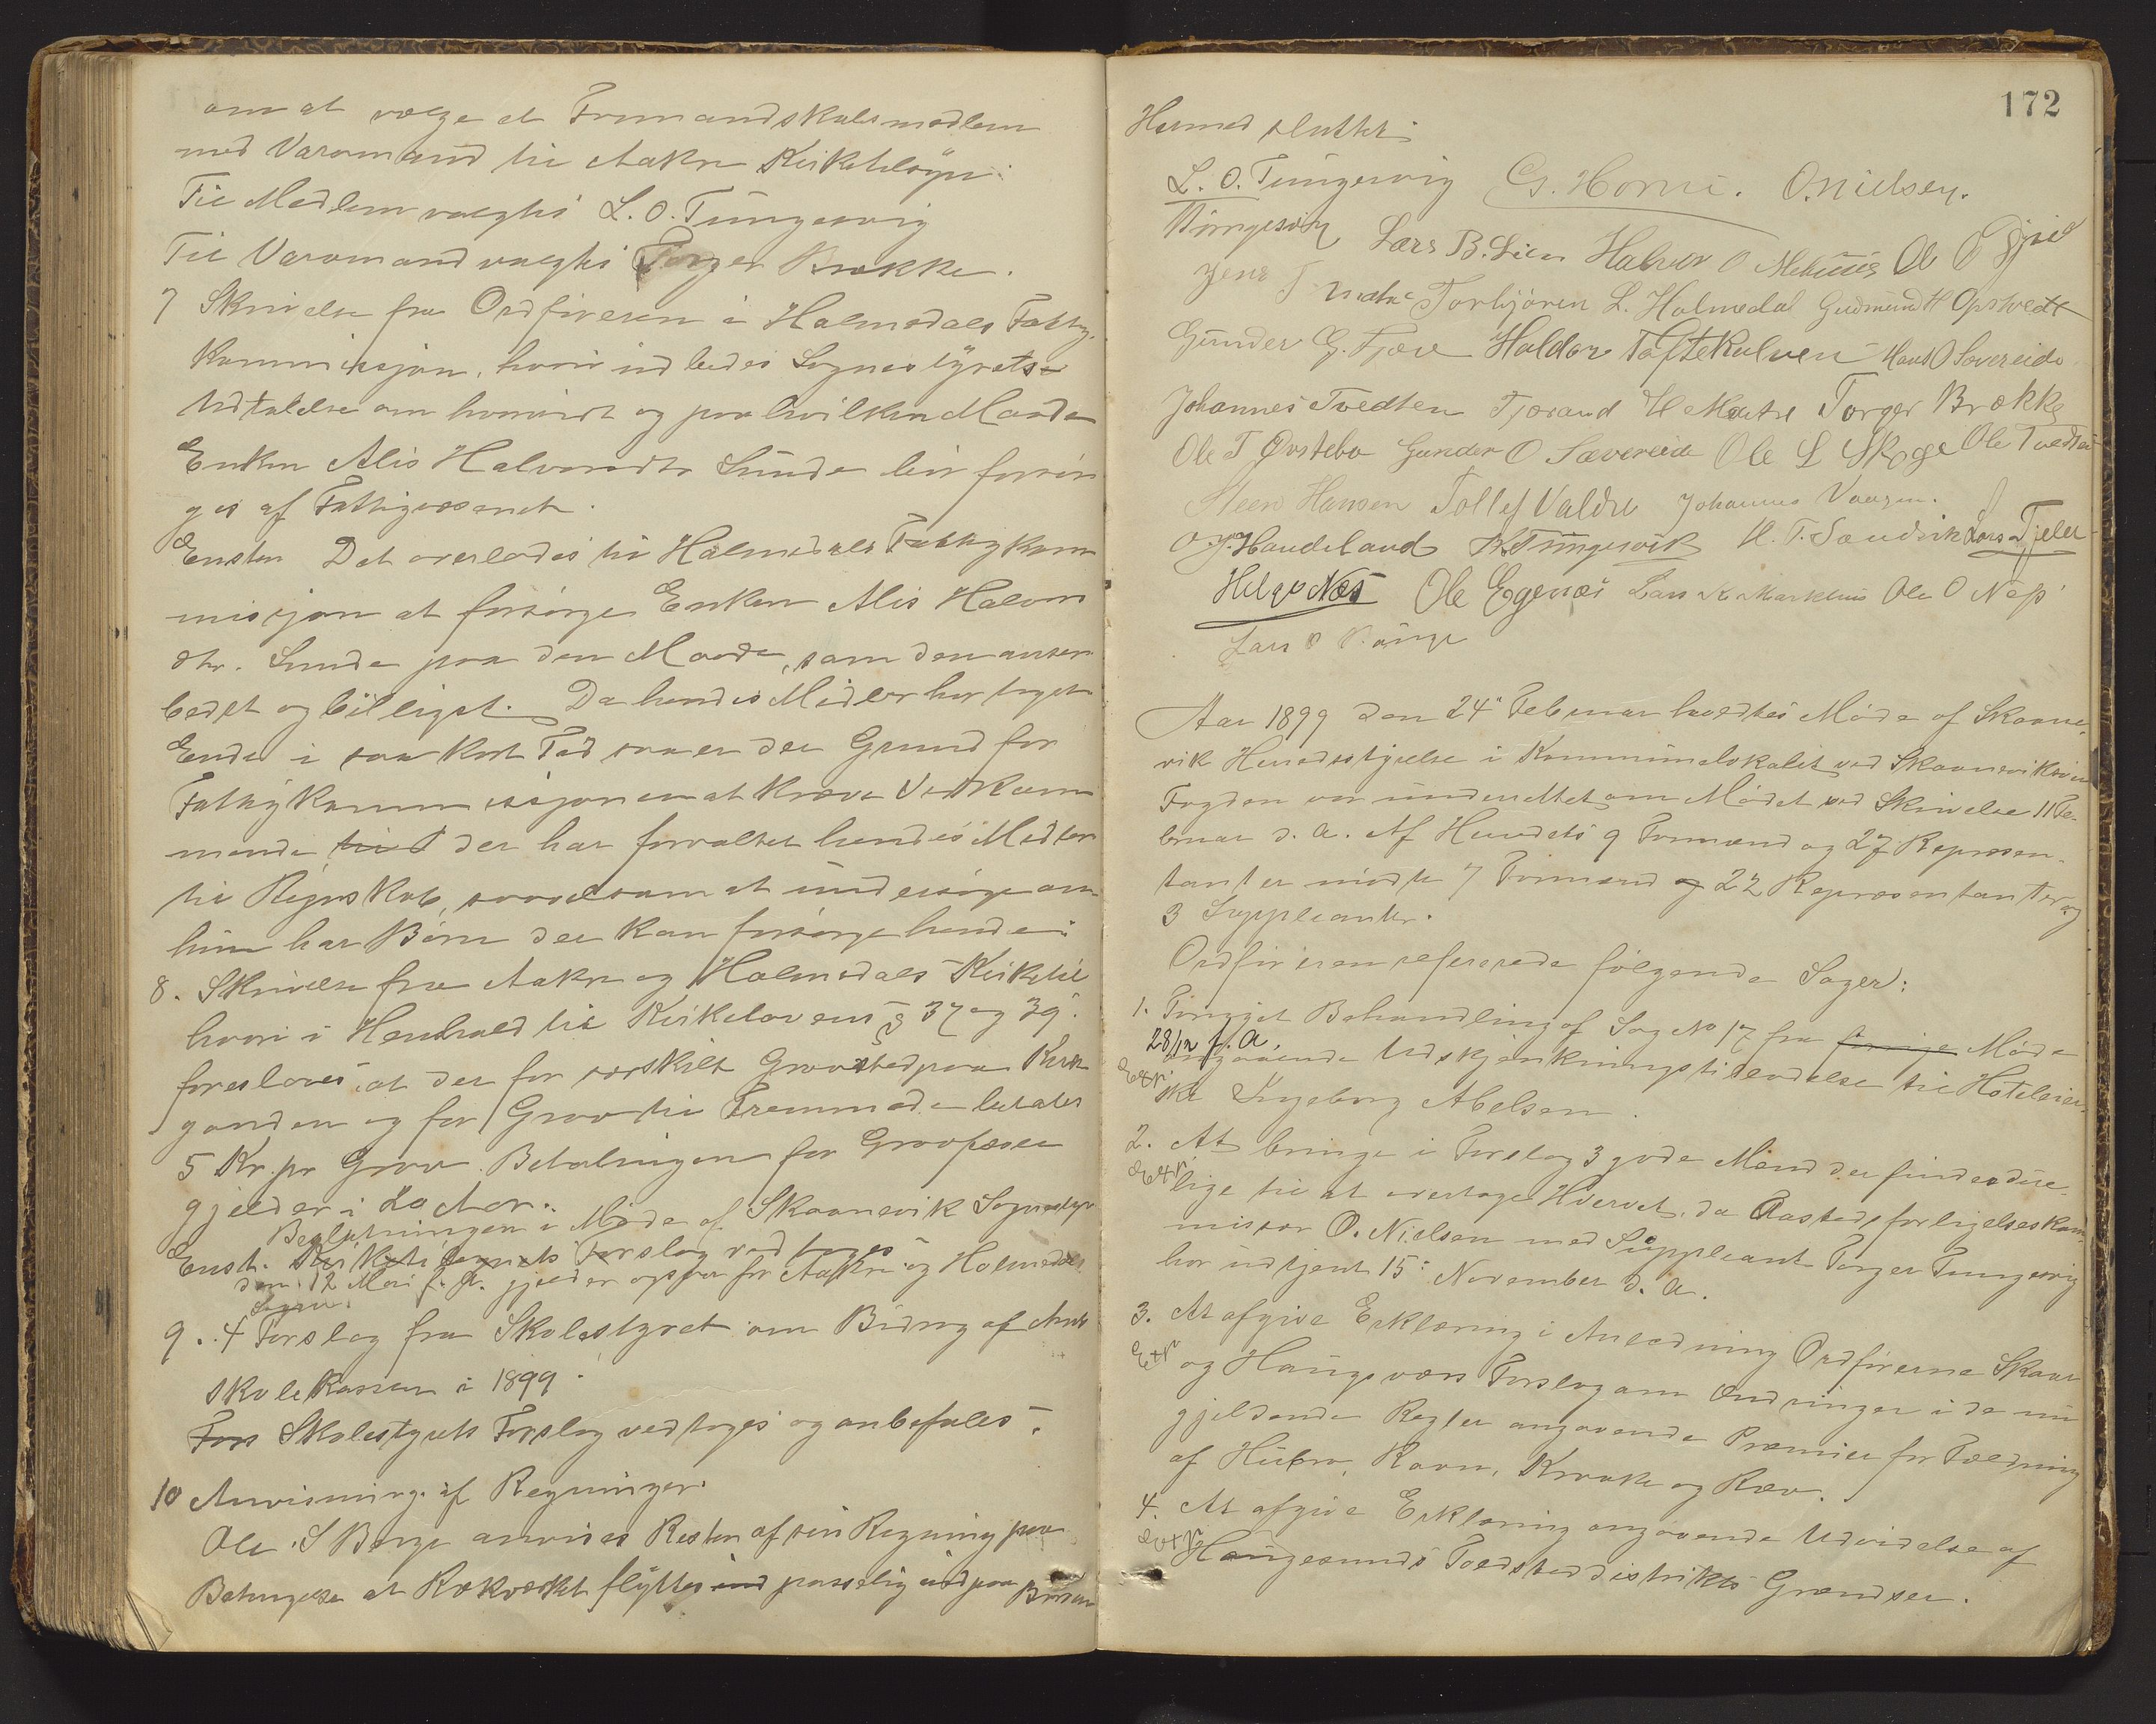 om at vælge et Formandskabsmedlem
med Varamand til Aakre Kirketilsyn:
Til Medlem valgtes L. O. Tungesvig
Til Varamand valgtes Torger Brække.
7 Skrivelse fra Ordføreren i Holmedals Fattig-
kommissjon, hvori indledes Sognestyrets
Udtalelse om hvorvidt og paa hvilken Maade
Enken Alis Halvorsdtr Sunde bør forsør
ges af Fattigvæsenet.
Enstem Det overlades til Holmedals Fattigkom
missjon at forsørge Enken Alis Halvors
dtr. Sunde paa den Maade, som den anser
bedst og billigst. Da hendes Midler har taget
Ende i saa kort Tid saa er der Grund for
Fattigkommissjonen at kræve Vedkom
mende til der har forvaltet hendes Midler
til Regnskab, saavelsom at undersøge om
hun har Børn der kan forsørge hende:
8. Skrivelse fra Aakre og Holmedals Kirketil
hvori i Henhold til Kirkelovens § 37 og 39.
foreslaaes at der for særskilt Gravsted paa Kirke
gaarden og for Grav til Fremmede betales
5 Kr. pr Grav. Betalingen for Gravfæste
gjelder i 20 Aar.
Beslutningen i Møde af Skaanevik Sognestyr
Enst. Kirketilsynets Forslag vedtages
den 12 Mai f. A. gjelder ogsaa for Aakre og Holmedals
Sogne.
9. 4 Forslag fra Skolestyret om Bidrag af Amts
skolekassen i 1899.
Fors Skolestyrets Forslag vedtages og anbefales.
10 Anvisning af Regninger.
Ole S Børge anvises Resten af sin Regning paa
Betingelse at Rækværket flyttes ind passelig ind paa
172
Hermed sluttet.
L. O. Tungesvig G. Horne. O. Nielsen.
Lars B. Lien Halvor O Mehuus Ole O
Jens Torbjøren L. Holmedal Gudmund H Opstvedt
Gunder G. Fjære Haldor Toftekalven Hans O Sævereide
Johannes Tvedten Tjærand H Matre Torger Brække
Ole T Ørstebø Gunder O Sævereide Ole L Skoge Ole Tvedten
Steen Hansen Tollef Valdre Johannes Vaagen.
O J. Haudeland K. Tungesvik H. T. Sandvik Lars Tjeler
Helge Næs Ole Egenæs Lars K Markhus Ole O Næs
Lars O
Aar 1899 den 24" Februar holdtes Møde af Skaane-
vik Herredsstyrelse i Kommunelokalet ved Skaanevikøen
Fogden var underrettet om Mødet ved Skrivelse 11 Fe-
bruar d. a. Af Herredets 9 Formænd og 27 Repræsen-
tanter mødte 7 Formænd og 22 Repræsentanter og
3 Suppleanter.
Ordføreren refererede følgende Sager:
1. Fornyet Behandling af Sag No 17 fra forrige Møde
28/12 f. a.
Extr. angaaende Udskjænkningstilladelse til Hoteleier-
ske Ingeborg Abelsen.
2. At bringe i Forslag 3 gode Mænd der findes due-
Extr. lige til at overtage Hvervet, da Aastedsforligelseskom-
missær O. Nielsen med Suppleant Torger Tungesvig
har udtjent 15. November d. a.
3. At afgive Erklæring i Anledning Ordførerne Skaar
Extr og Haugsværs Forslag om Ændringer i de nu
gjeldende Regler angaaende Præmier for Fældning
af Hubro, Ravn, Kraake og Ræv.
4. At afgive Erklæring angaaende Udvidelse af
Extr Haugesunds Toldsteddistrikts Grændser.